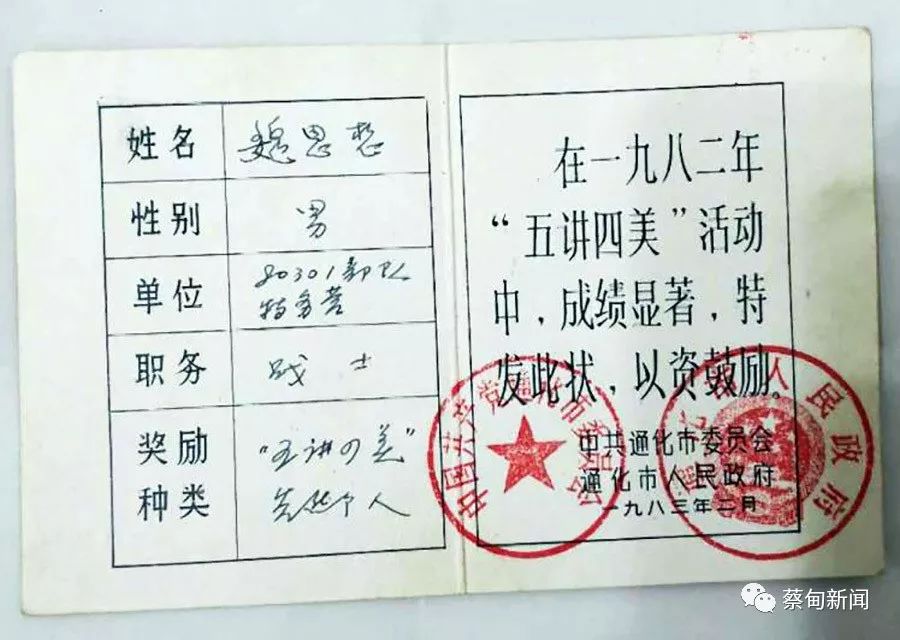 姓名 魏思想
性别 男
单位 80301部队
特务营
职务 战士
奖励
种类
“五讲四美”
先进个人
在一九八二年
“五讲四美”活动
中，成绩显著，特
发此状，以资鼓励。
中共通化市委员会
通化市人民政府
一九八三年二月
中国共产党通化市委员会
人民政府
蔡甸新闻